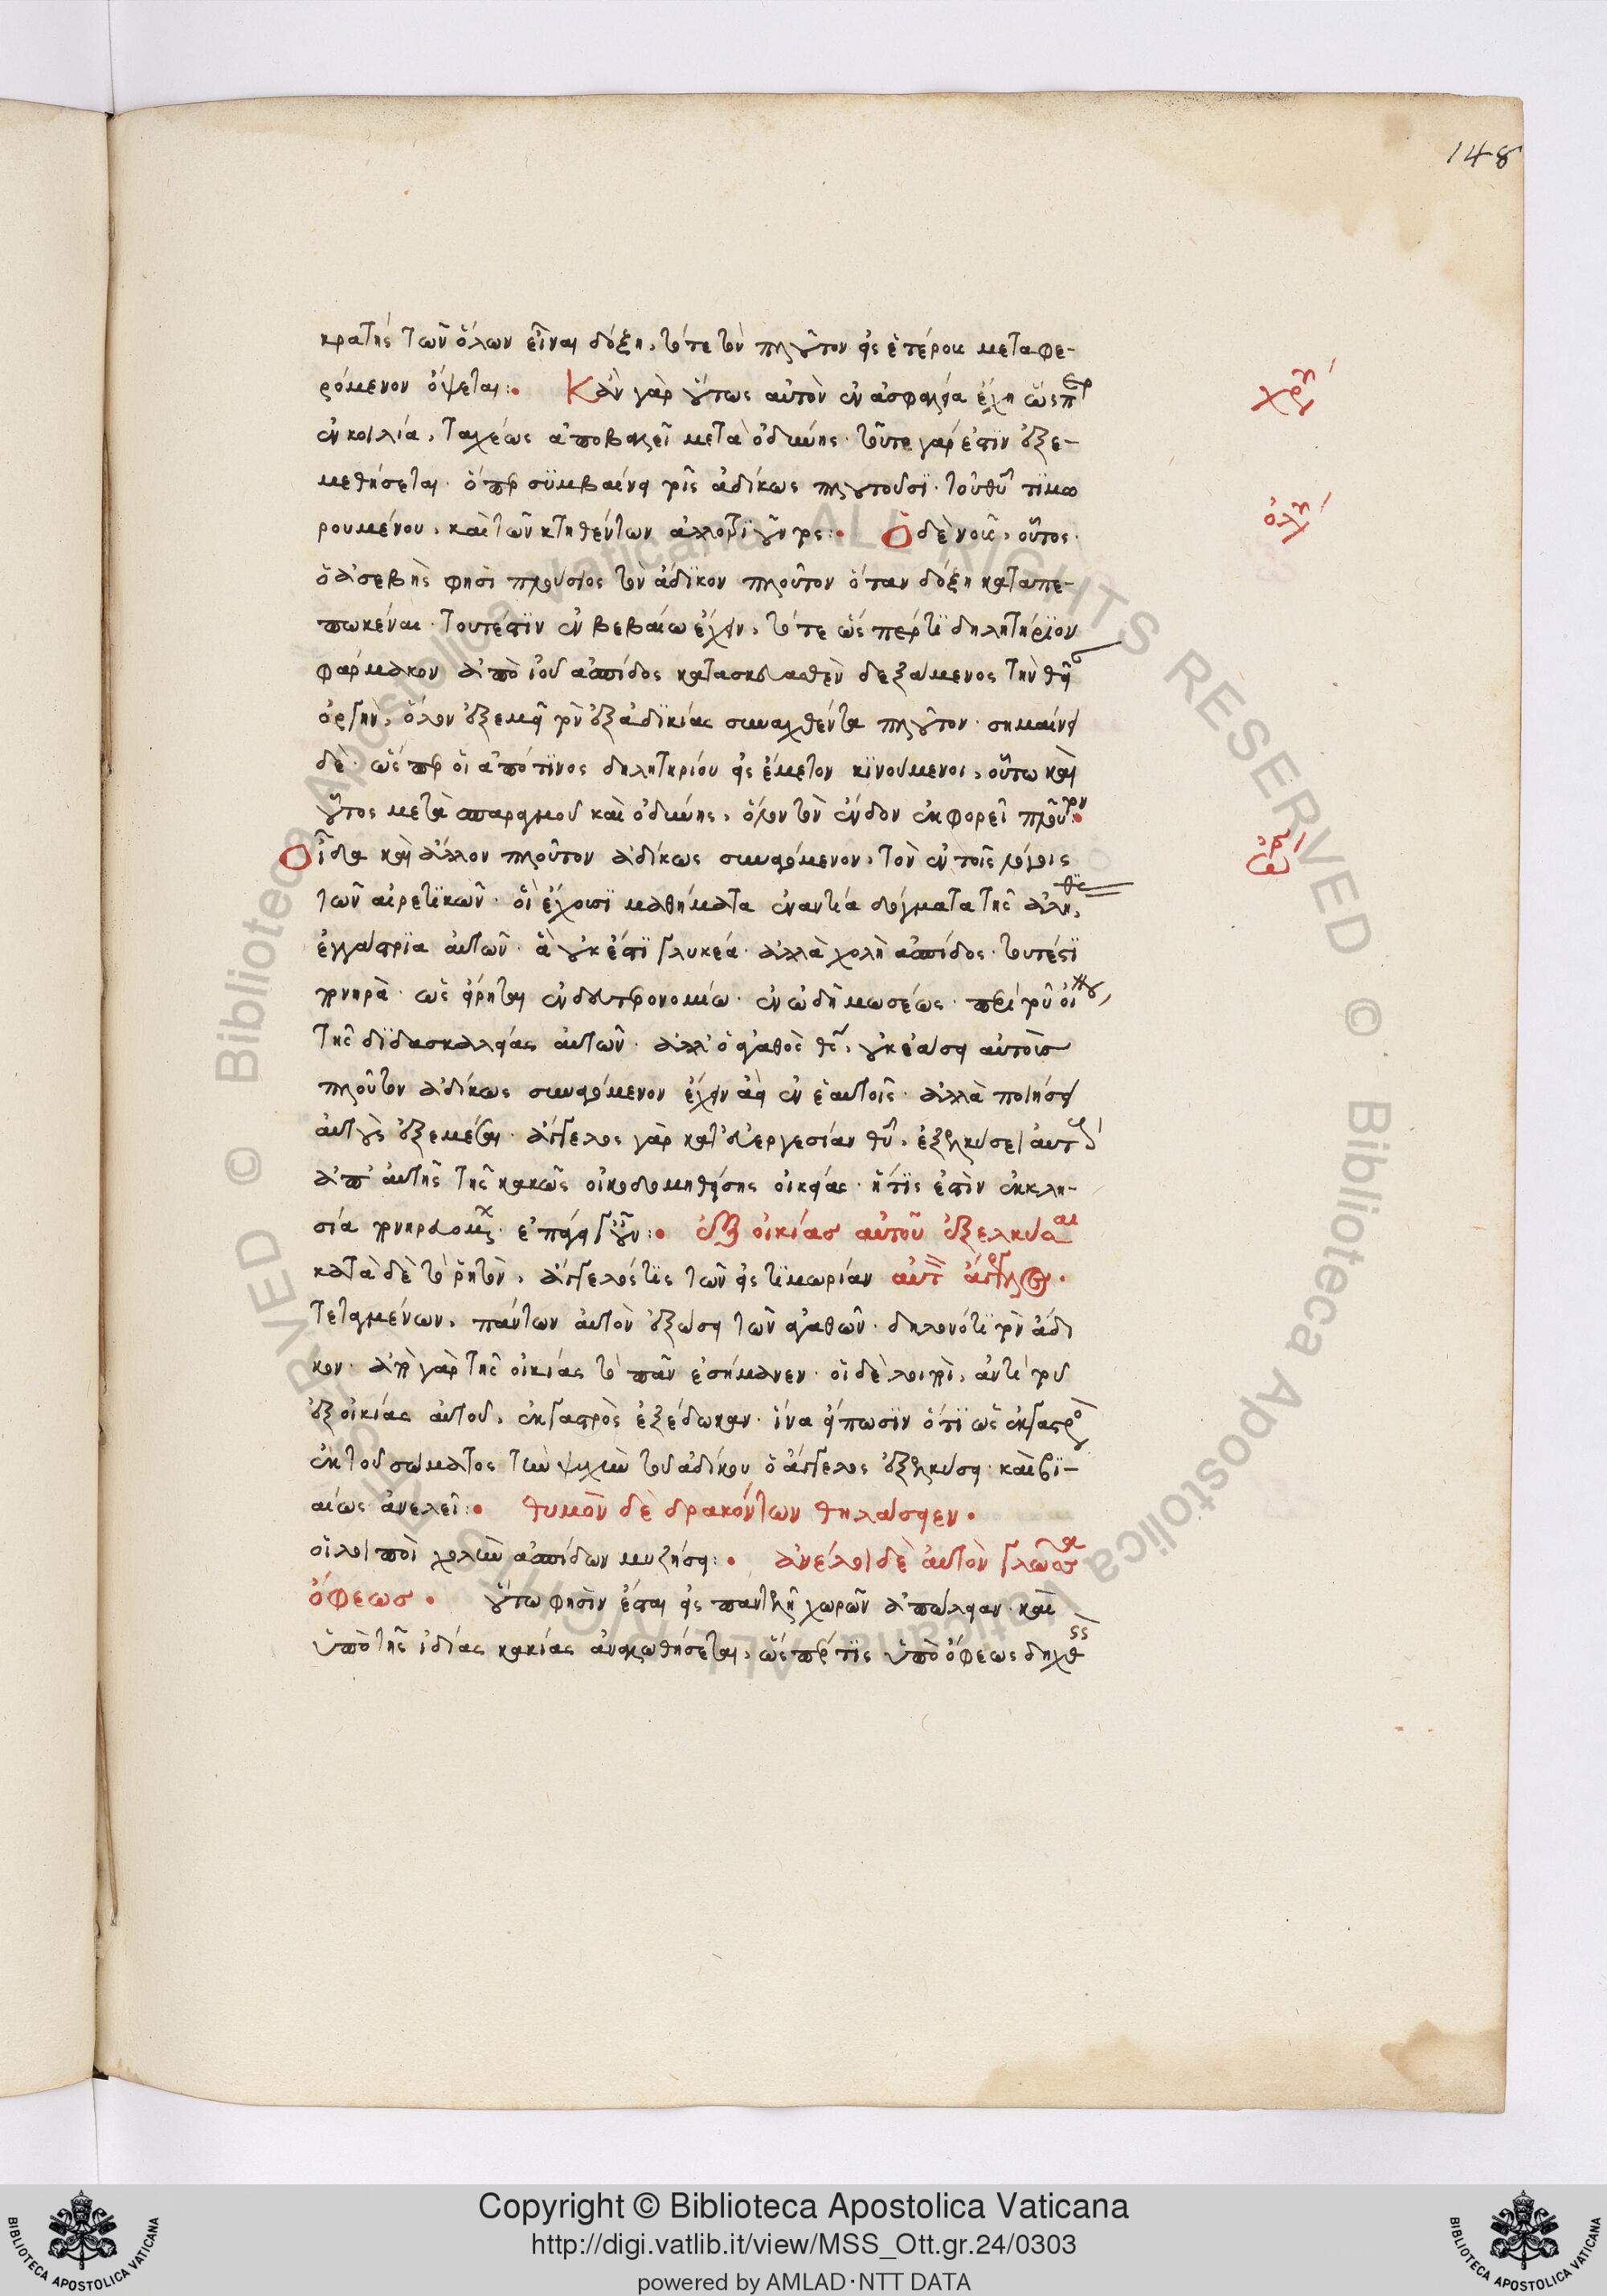 148
κρατὴς τῶν ὅλων εἶναι δόξῃ, τότε τὸν πλοῦτον εἰς ἑτέρους μεταφε-
ρόμενον ὄψεται:· Κἂν γὰρ οὕτως αὐτὸν ἐν ἀσφαλεία ἔχη ὥσπερ
χρυ
ἐν κοιλία, ταχέως ἀποβαλεῖ μετὰ ὀδύνης· τοῦτο γάρ ἐστιν ἐξε-
μεθήσεται· ὅπερ συμβαίνει τοῖς ἀδίκως πλουτοῦσι· τοῦ θυ τιμω
ρουμένου, καὶ τῶν κτηθέντων ἀλλοτριοῦντος:· Ὁ δὲ νοῦς, οὗτος·
ὀλυ
ὁ ἀσεβὴς φησὶ πλούσιος τὸν ἄδικον πλοῦτον ὅταν δόξη καταπε-
πωκέναι· τουτέστιν ἐν βεβαίω ἔχειν, τότε ὥσπερ τι δηλητήριον
φάρμακον ἀπὸ ἰοῦ ἀσπίδος κατασκευασθὲν δεξάμενος τὴν θείαν
ὀργὴν, ὅλον ἐξεμεῖ τὸν ἐξ ἀδικίας συναχθέντα πλοῦτον· σημαίνει
δὲ· ὥσπερ οἱ ἀπό τινος δηλητηρίου εἰς ἔμετον κινούμενοι, οὕτω καὶ
οὗτος μετὰ σπαραγμοῦ καὶ ὀδύνης, ὅλον τὸν ἔνδον ἐκφορεῖ πλοῦτον:·
Οἶδα καὶ ἄλλον πλοῦτον ἀδίκως συναγόμενον, τὸν ἐν τοῖς λόγοις
τῶν αἱρετικῶν· οἳ ἔχουσι μαθήματα ἐναντία δόγματα τῆς ἀληθείας,
ἐγγάστρια αὐτῶν· ἃ οὐκ ἔστι γλυκέα· ἀλλὰ χολὴ ἀσπίδος· τουτέστι
πονηρὰ· ὡς εἴρηται ἐν δευτερονομίω· ἐν ὠδῆ μωσέως· περὶ τοῦ οἴνου,
τῆς διδασκαλείας αὐτῶν· ἀλλ' ὁ ἀγαθὸς θς, οὐκ ἐάσει αὐτοὺς
πλοῦτον ἀδίκως συναγόμενον ἔχειν ἀεὶ ἐν ἑαυτοῖς· ἀλλὰ ποιήσει
αὐτοὺς ἐξεμέσαι· ἄγγελος γὰρ κατ' εὐεργεσίαν θυ, ἐξελκύσει αὐτοὺς
ἀπ' αὐτῆς τῆς κακῶς οἰκοδομηθείσης οἰκείας· ἥτις ἐστὶν ἐκκλη-
σία πονηρευομένων· ἐπάγει γοῦν:· ἐξ οἰκίας αὐτοῦ ἐξελκύσαι
κατὰ δὲ τὸ ῥητὸν, ἄγγελός τις τῶν εἰς τιμωρίαν αὐτὸν ἄγγελος·
τεταγμένων, πάντων αὐτὸν ἐξώσει τῶν ἀγαθῶν· δηλονότι τὸν ἄδι
κον· ἀπὸ γὰρ τῆς οἰκίας τὸ πᾶν ἐσήμανεν· οἱ δὲ λοιποὶ, ἀντὶ τοῦ
ἐξ οἰκίας αὐτοῦ, ἐκ γαστρὸς ἐξέδωκαν· ἵνα εἴπωσιν ὅτι ὡς ἐκ γαστρὸς
ἐκ τοῦ σώματος τὴν ψυχὴν τοῦ ἀδίκου ὁ ἄγγελος ἐξελκύσει· καὶ βι-
αίως ἀνελεῖ:· θυμὸν δὲ δρακόντων θηλάσειεν·
οἱ λοιποὶ χολὴν ἀσπίδων μυζήσει:· ἀνέλοι δὲ αὐτὸν γλῶσσα
ὄφεως· οὕτω φησὶν ἔσται εἰς παντελῆ χωρῶν ἀπώλειαν· καὶ
ὑπὸ τῆς ἰδίας κακίας ἀναλωθήσεται, ὥσπερ τις ὑπὸ ὄφεως δηχθεὶς
Copyright © Biblioteca Apostolica Vaticana
http://digi.vatlib.it/view/MSS_Ott.gr.24/0303
powered by AMLAD·NTT DATA
BIBLIOTECA APOSTOLICA VATICANA
BIBLIOTECA APOSTOLICA VATICANA
© Biblioteca Apostolica Vaticana ALL RIGHTS RESERVED
© Biblioteca Apostolica Vaticana ALL RIGHTS RESERVED